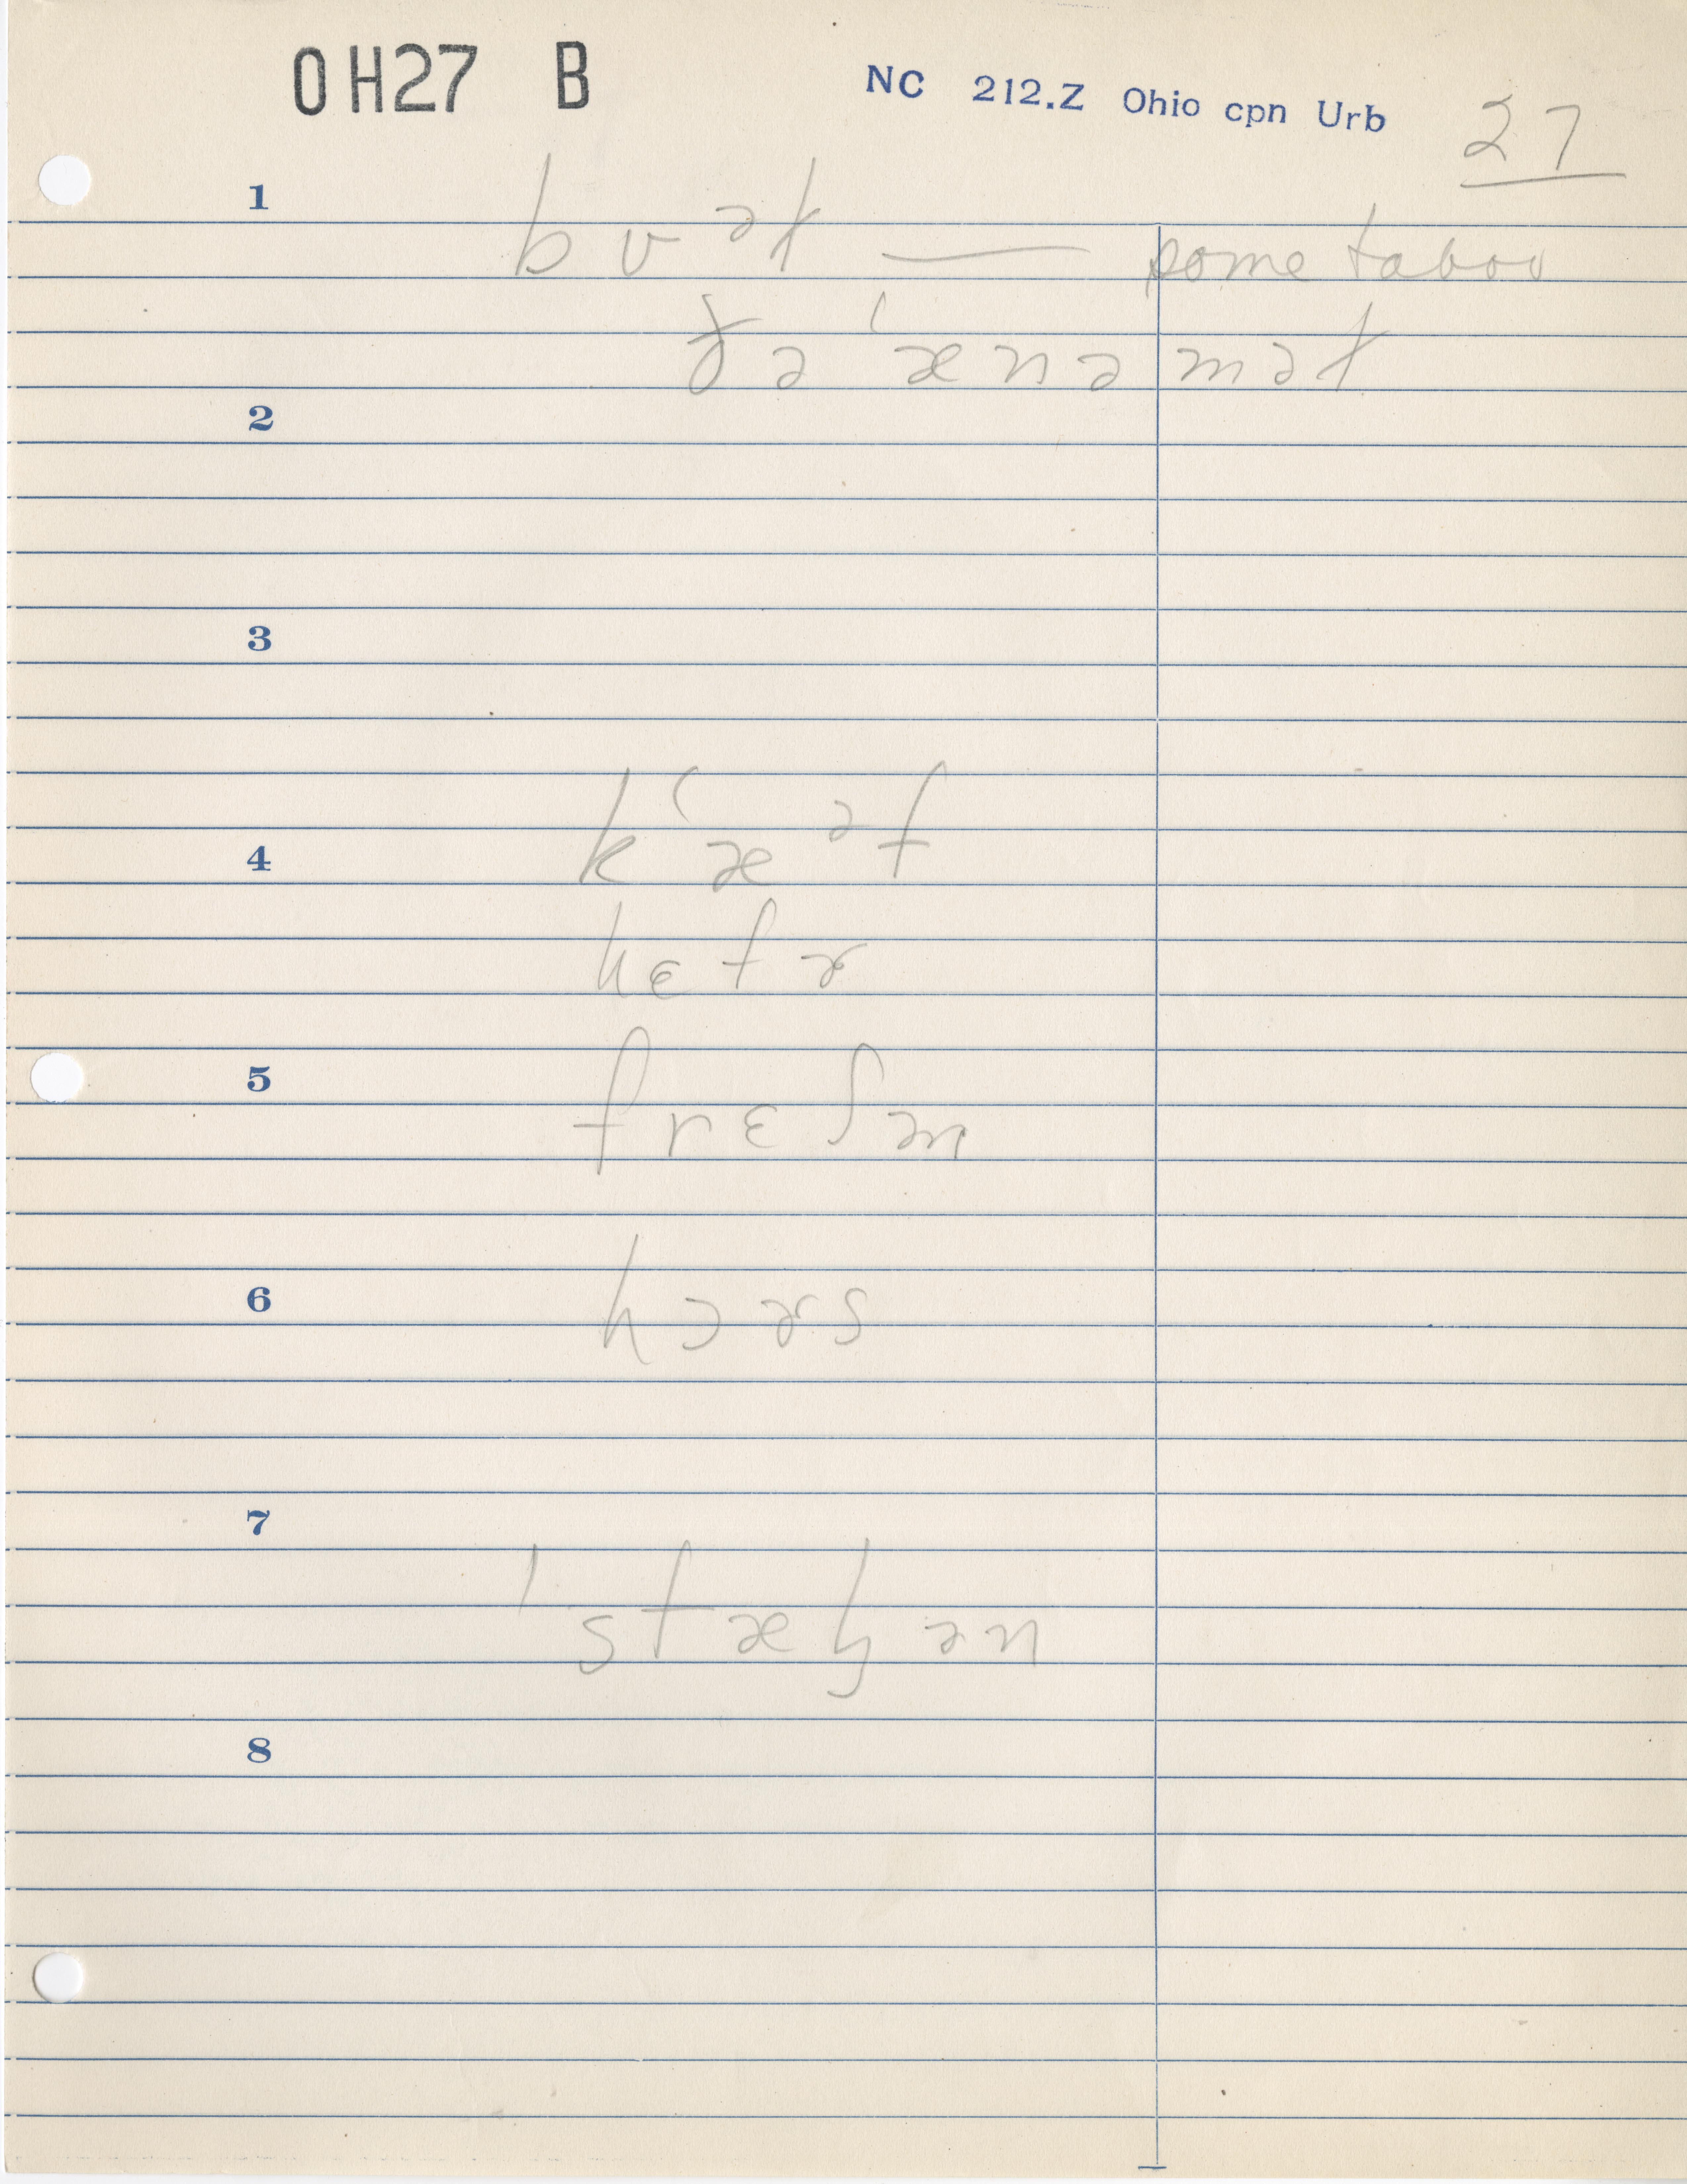 OH27 B
NC 212.Z Ohio cpn Urb
27
1
bʊᵊɫ — some taboo
ðə ˈænəməɫ
2
3
4
kˈæᵊf
hɛfɚ
5
frɛʃn̩
6
hɔɚs
7
ˈstæɧən
8